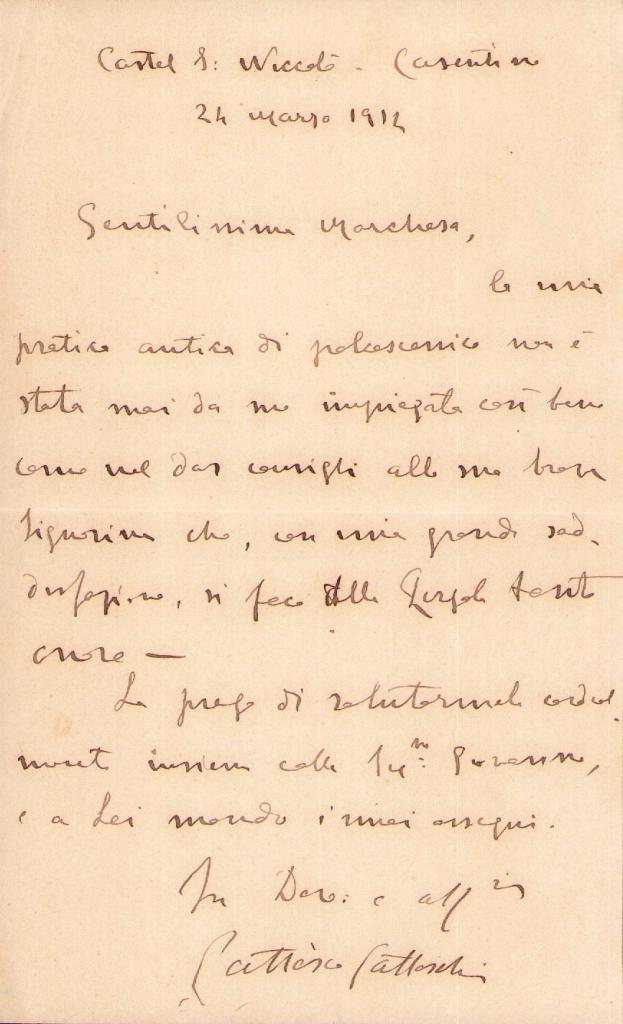 Castel S: Niccolò - Casentino
24 Marzo 1912
Gentilissima Marchesa,
la mia
pratica antica di palcoscenico non è
stata mai da me impiegata così bene
come nel dar consigli alla sua brava
Signorina che, con mia grande sod-
disfazione, si fece alla Pergola tanto
onore —
La prego di salutarmela cordial
mente insieme colla Sig.na Giovanna,
e a Lei mando i miei ossequi.
Suo Dev: e aff